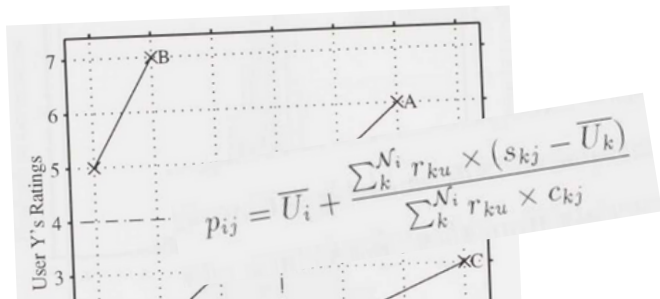 7
B
6
A
5
User Y's Ratings
4
p_{ij} = \overline{U_i} + \frac{\sum_k^{N_i} r_{ku} \times (s_{kj} - \overline{U_k})}{\sum_k^{N_i} r_{ku} \times c_{kj}}
3
C